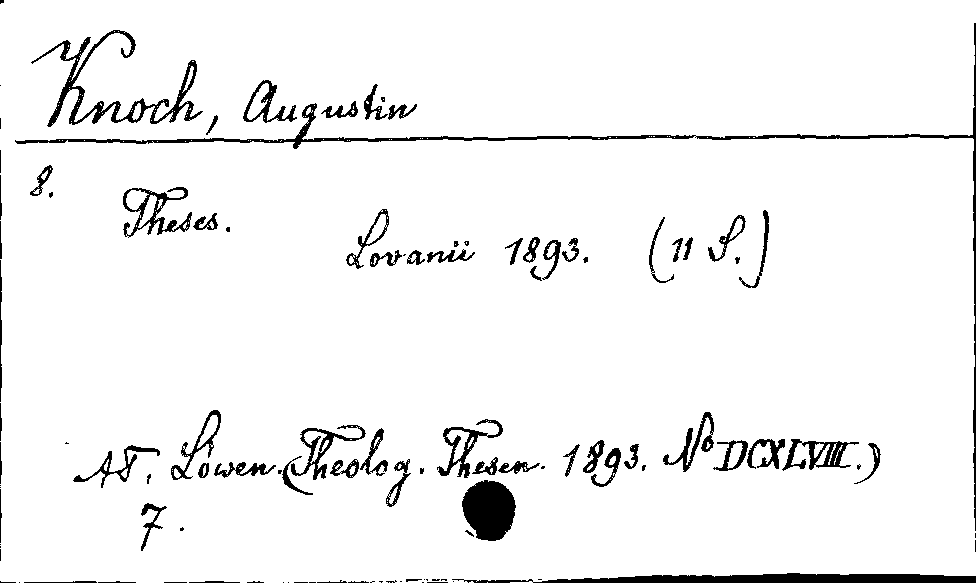 Knoch, Augustin
8.
Theses.
Lovanii 1893. (11 S.)
AT. Löwen. (Theolog. Thesen. 1893. No DCXLVIII.)
7.